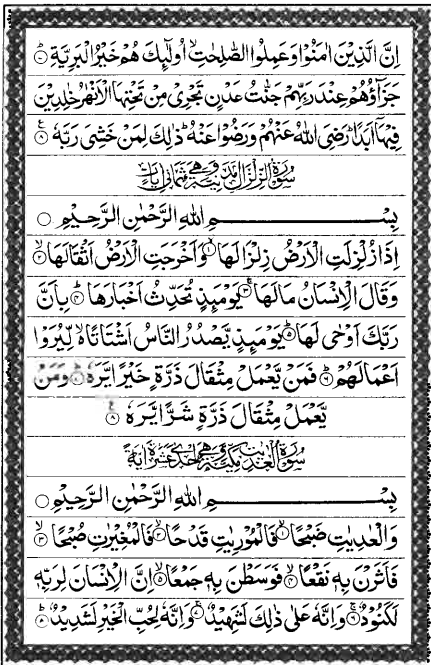 اِنَّ الَّذِيْنَ اٰمَنُوْا وَعَمِلُوا الصّٰلِحٰتِۙ اُولٰٓئِكَ هُمْ خَيْرُ الْبَرِيَّةِؕ ۷
جَزَآؤُهُمْ عِنْدَ رَبِّهِمْ جَنّٰتُ عَدْنٍ تَجْرِىْ مِنْ تَحْتِهَا الْاَنْهٰرُ خٰلِدِيْنَ
فِيْهَاۤ اَبَدًاؕ رَضِىَ اللّٰهُ عَنْهُمْ وَرَضُوْا عَنْهُؕ ذٰلِكَ لِمَنْ خَشِىَ رَبَّهٗ ۸
سُوْرَةُ الزِّلْزَالِ مَدَنِيَّةٌ وَّهِىَ ثَمَانِىْ اٰيَاتٍ
بِسْمِ اللّٰهِ الرَّحْمٰنِ الرَّحِيْمِ ○
اِذَا زُلْزِلَتِ الْاَرْضُ زِلْزَالَهَاۙ ۱ وَاَخْرَجَتِ الْاَرْضُ اَثْقَالَهَاۙ ۲
وَقَالَ الْاِنْسَانُ مَا لَهَاۚ ۳ يَوْمَئِذٍ تُحَدِّثُ اَخْبَارَهَاۙ ۴ بِاَنَّ
رَبَّكَ اَوْحٰى لَهَاؕ ۵ يَوْمَئِذٍ يَّصْدُرُ النَّاسُ اَشْتَاتًا ۙ لِّيُرَوْا
اَعْمَالَهُمْؕ ۶ فَمَنْ يَّعْمَلْ مِثْقَالَ ذَرَّةٍ خَيْرًا يَّرَهٗؕ ۷ وَمَنْ
يَّعْمَلْ مِثْقَالَ ذَرَّةٍ شَرًّا يَّرَهٗ ۸
سُوْرَةُ الْعٰدِيٰتِ مَكِّيَّةٌ وَّهِىَ اِحْدٰى عَشَرَةَ اٰيَةً
بِسْمِ اللّٰهِ الرَّحْمٰنِ الرَّحِيْمِ ○
وَالْعٰدِيٰتِ ضَبْحًاۙ ۱ فَالْمُوْرِيٰتِ قَدْحًاۙ ۲ فَالْمُغِيْرٰتِ صُبْحًاۙ ۳
فَاَثَرْنَ بِهٖ نَقْعًاۙ ۴ فَوَسَطْنَ بِهٖ جَمْعًاۙ ۵ اِنَّ الْاِنْسَانَ لِرَبِّهٖ
لَكَنُوْدٌۚ ۶ وَاِنَّهٗ عَلٰى ذٰلِكَ لَشَهِيْدٌۚ ۷ وَاِنَّهٗ لِحُبِّ الْخَيْرِ لَشَدِيْدٌؕ ۸